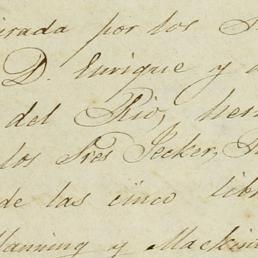 irada por los
D. Enrique y
del Rio, her
los Sres Jecker,
de las cinco lib
Manning y Mackin